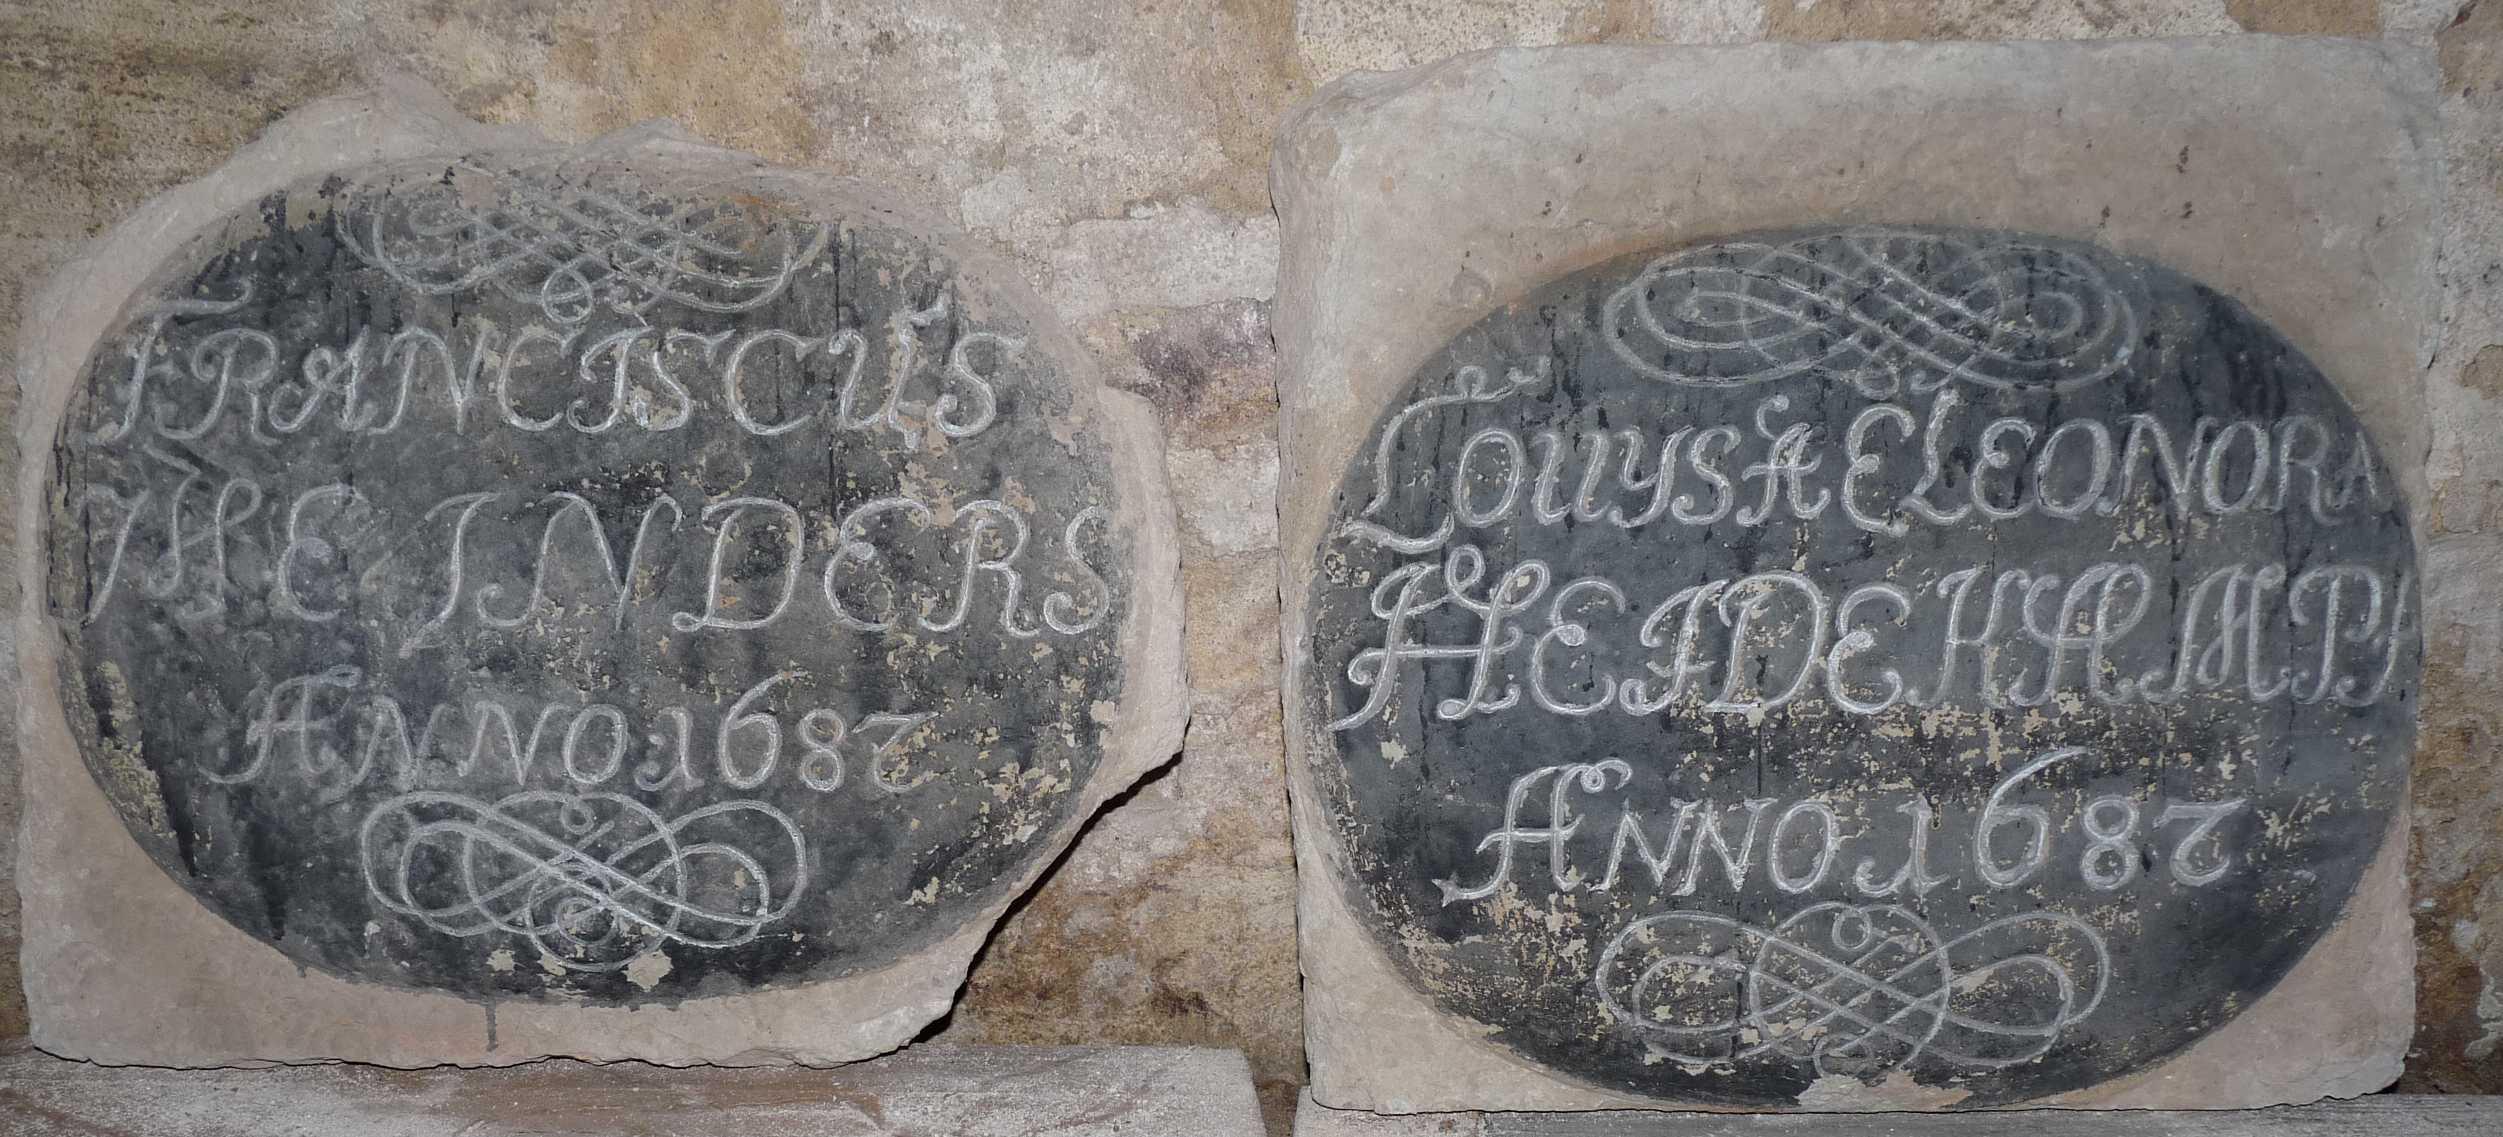 FRANCISCUS
MEINDERS
ANNO 1687
LOUYSA ELEONORA
HEIDEKAMPF
ANNO 1687